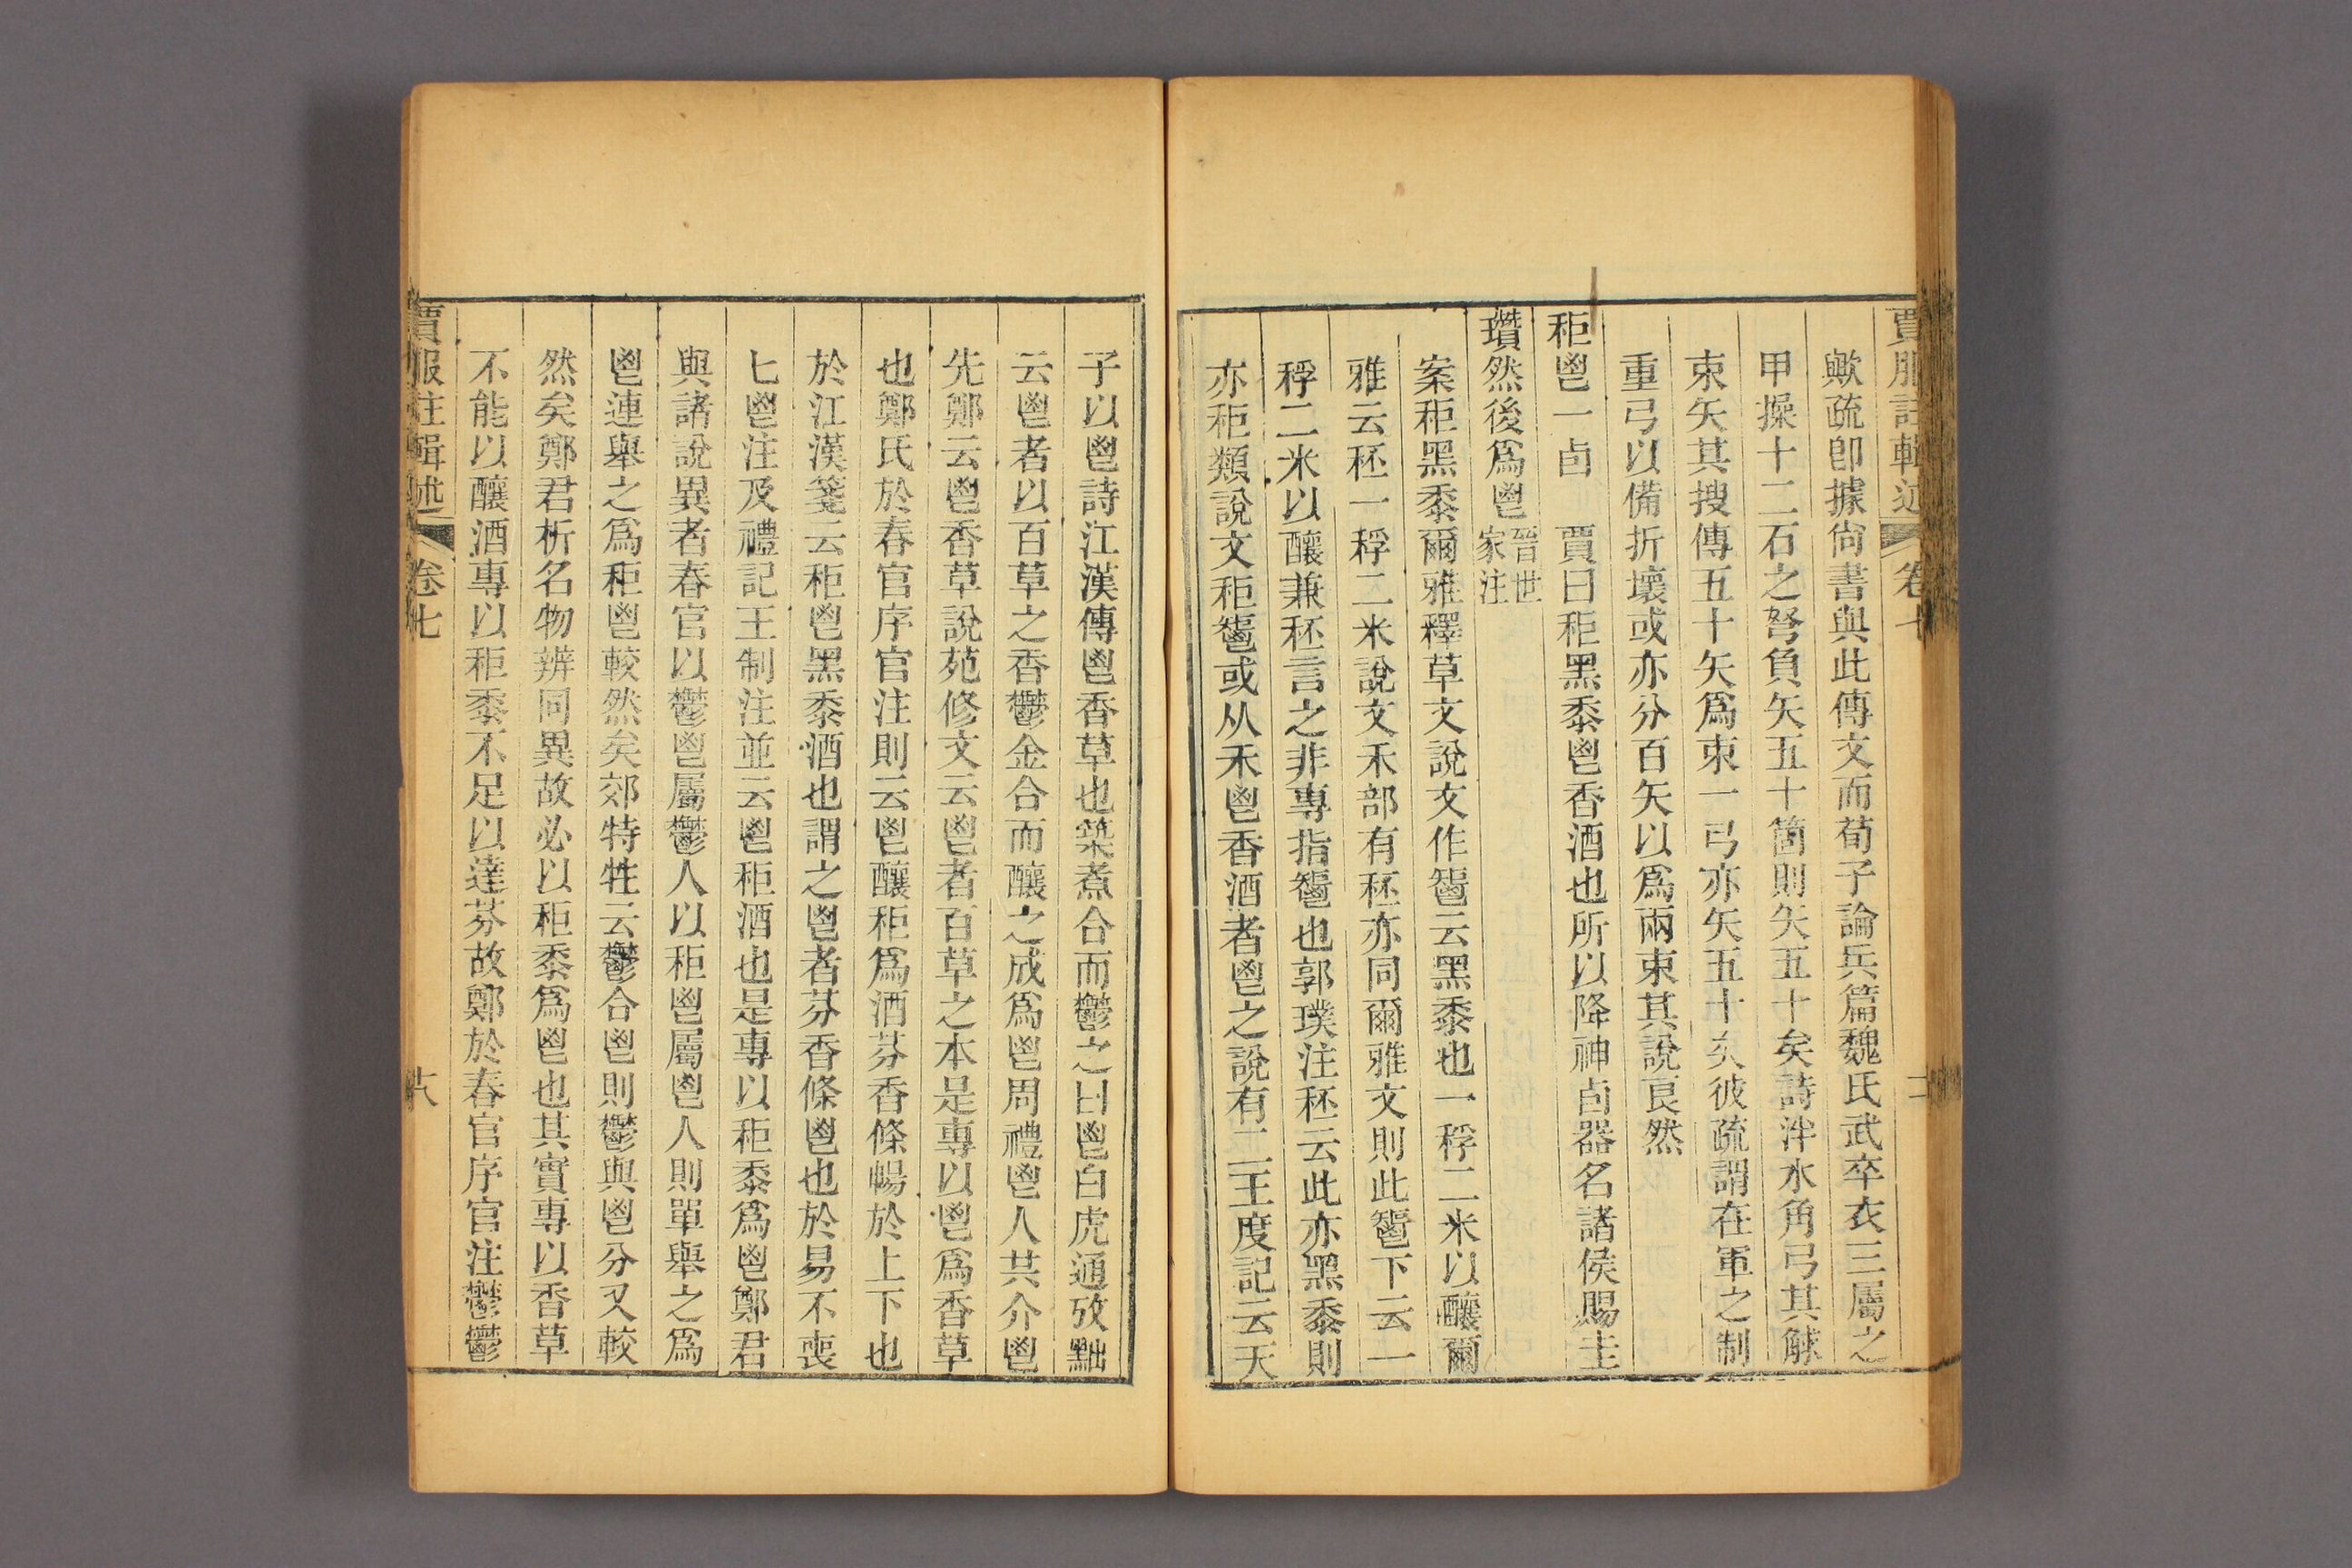 賈服註輯述 卷七
歟疏卽據尙書與此傳文而荀子論兵篇魏氏武卒衣三屬之
甲操十二石之弩負矢五十箇則矢五十矣詩泮水角弓其觩
束矢其搜傳五十矢爲束一弓亦矢五十矣彼疏謂在軍之制
重弓以備折壞或亦分百矢以爲兩束其說良然
秬鬯一卣 賈曰秬黑黍鬯香酒也所以降神卣器名諸侯賜圭
瓚然後爲鬯晉世家注
案秬黑黍爾雅釋草文說文作𩰤云黑黍也一稃二米以釀爾
雅云秠一稃二米說文禾部有秠亦同爾雅文則此𩰤下云一
稃二米以釀兼秠言之非專指𩰤也郭璞注秠云此亦黑黍則
亦秬類說文秬𩰤或从禾鬯香酒者鬯之說有二王度記云天
子以鬯詩江漢傳鬯香草也築煮合而鬱之曰鬯白虎通攷黜
云鬯者以百草之香鬱金合而釀之成爲鬯周禮鬯人共介鬯
先鄭云鬯香草說苑修文云鬯者百草之本是專以鬯爲香草
也鄭氏於春官序官注則云鬯釀秬爲酒芬香條暢於上下也
於江漢箋云秬鬯黑黍酒也謂之鬯者芬香條鬯也於易不喪
匕鬯注及禮記王制注並云鬯秬酒也是專以秬黍爲鬯鄭君
與諸說異者春官以鬱鬯屬鬱人以秬鬯屬鬯人則單舉之爲
鬯連舉之爲秬鬯較然矣郊特牲云鬱合鬯則鬱與鬯分又較
然矣鄭君析名物辨同異故必以秬黍爲鬯也其實專以香草
不能以釀酒專以秬黍不足以達芬故鄭於春官序官注鬱鬱
賈服注輯述 卷七 十八